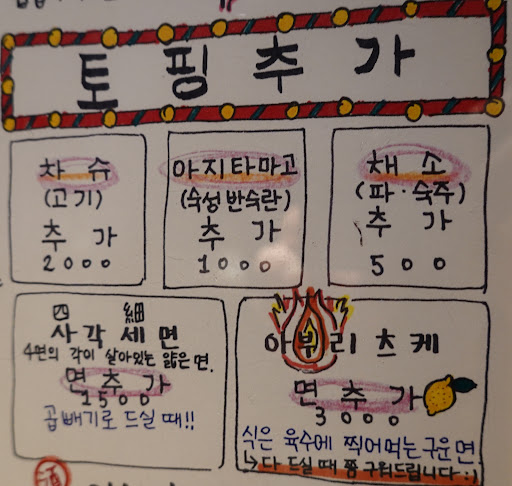 토핑추가
차슈
(고기)
추가
2000
아지타마고
(숙성반숙란)
추가
1000
채소
(파·숙주)
추가
500
四 細
사각세면
4면의 각이 살아있는 얇은 면.
면추가
1500
곱빼기로 드실 때!!
아부리츠케
면추가
3000
식은 육수에 찍어먹는 구운면
↳다 드실 때 쯤 구워드립니다 :)